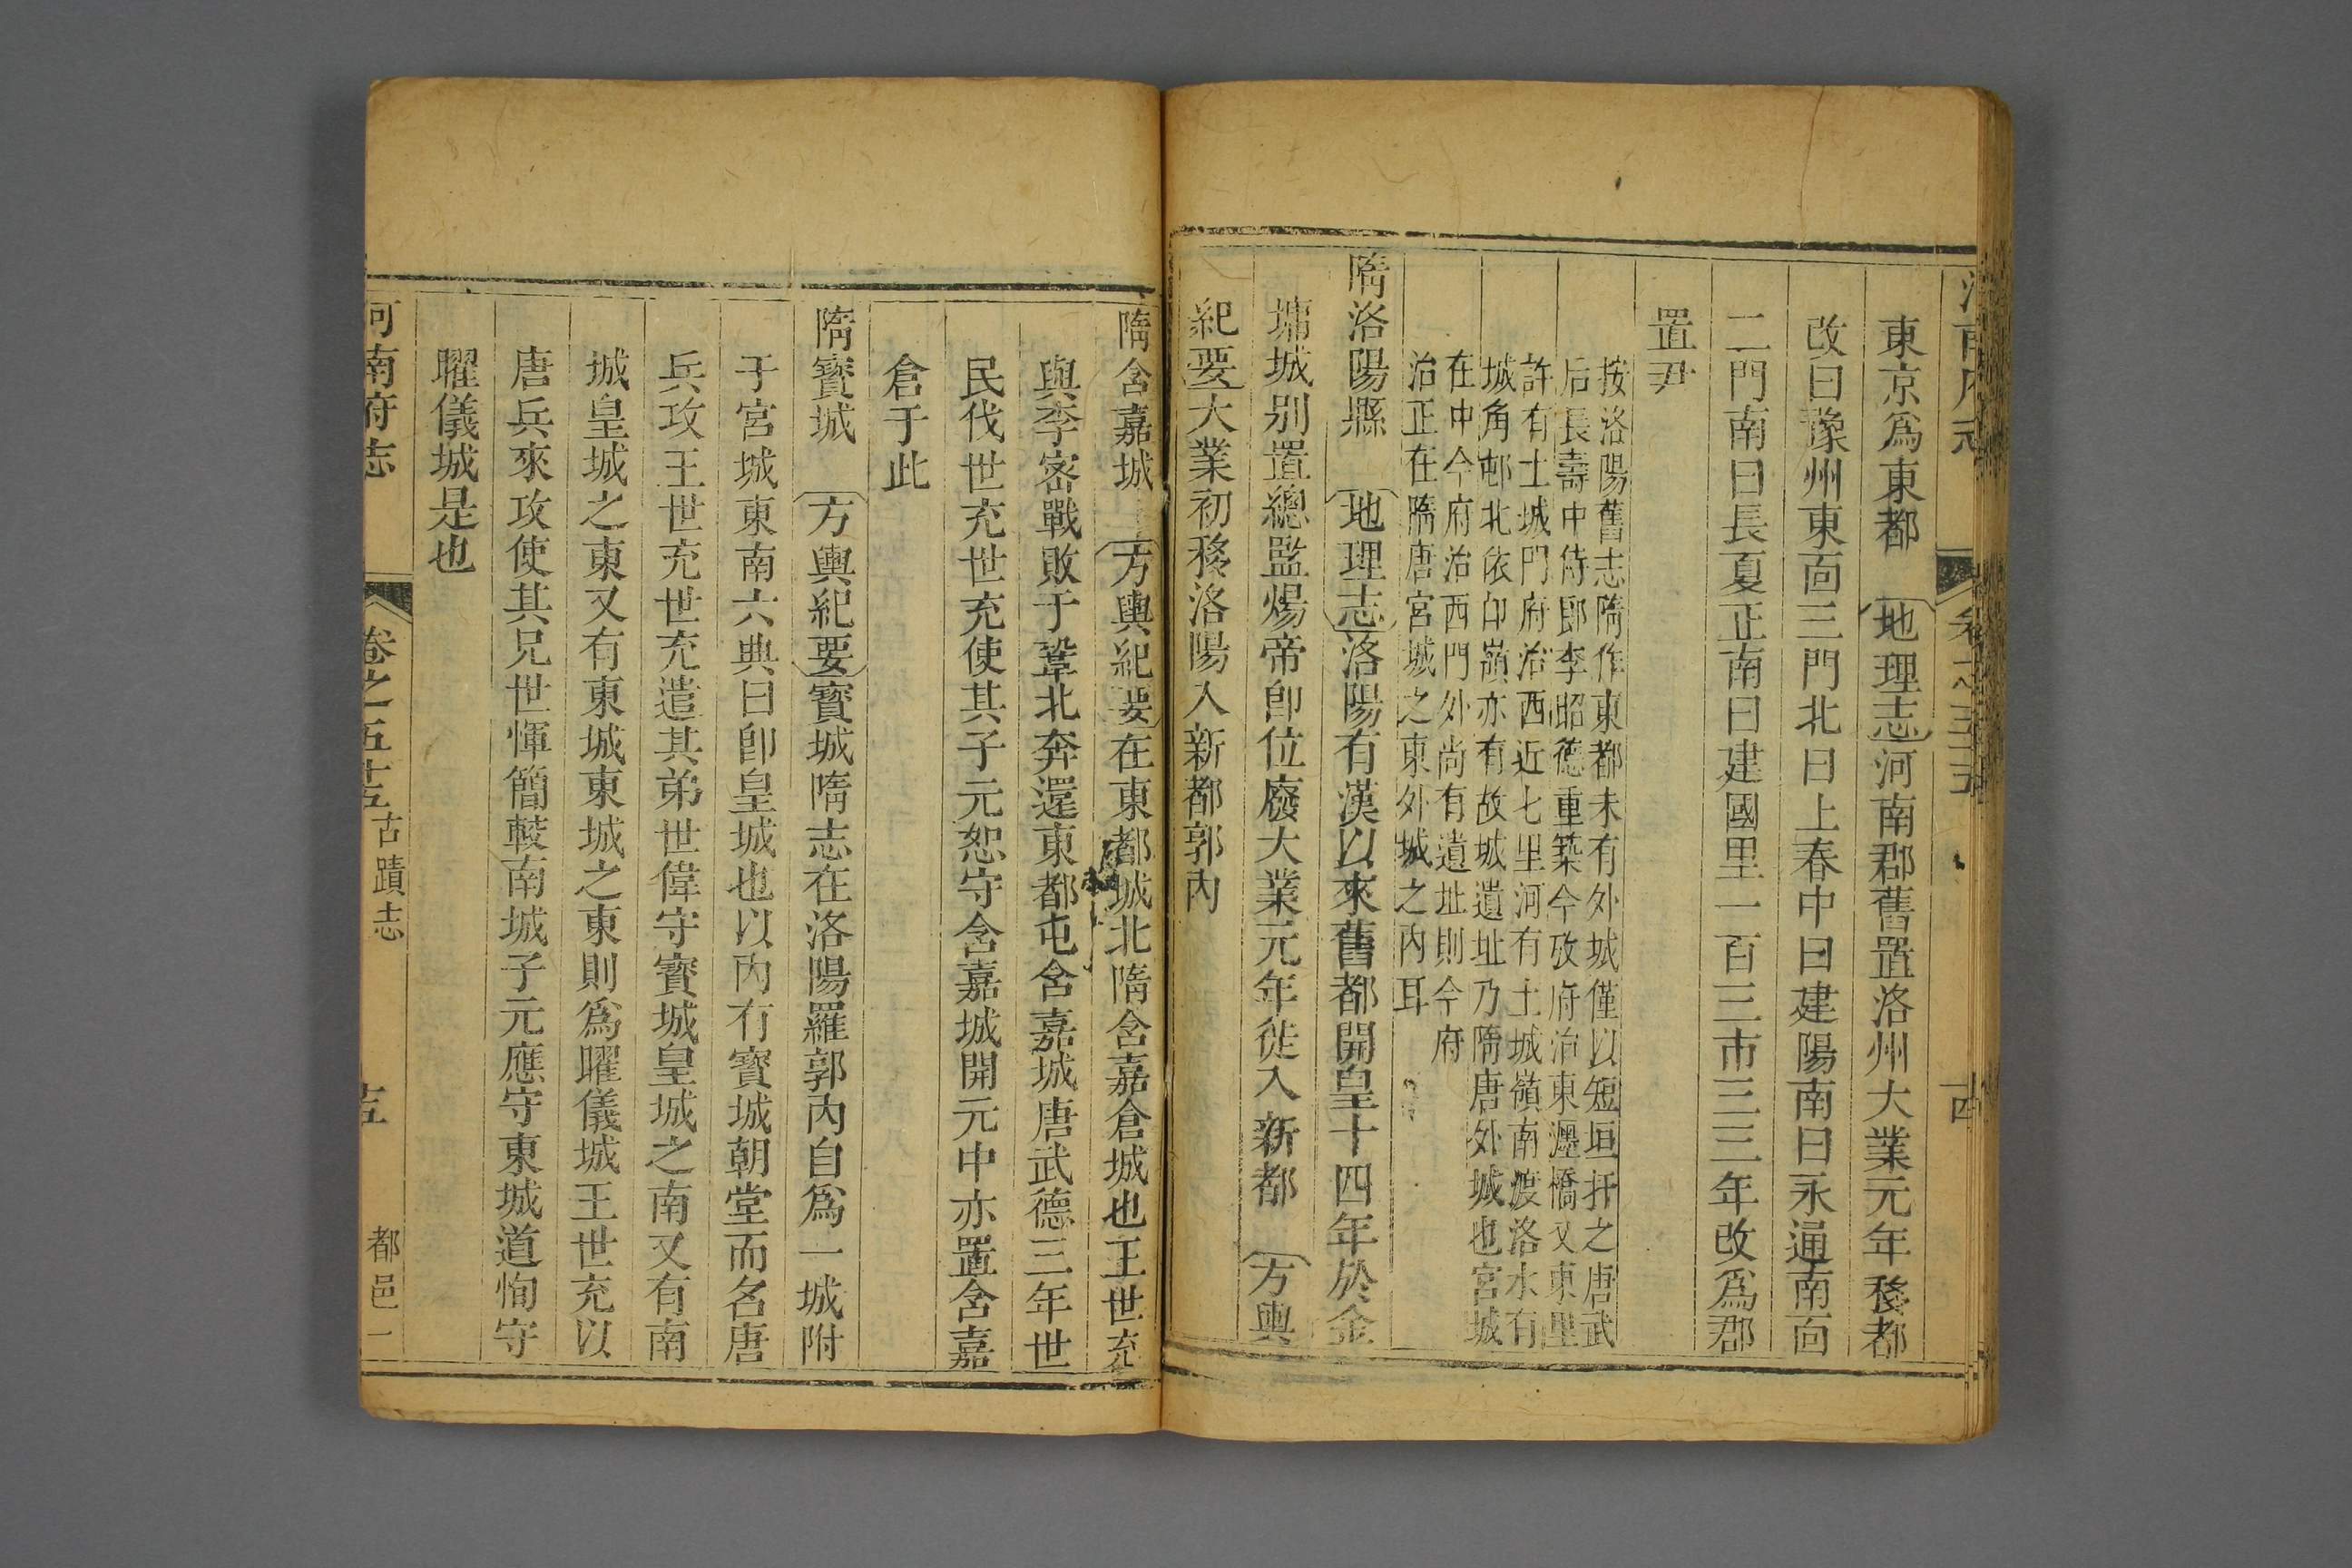 東京爲東都　地理志河南郡舊置洛州大業元年移都
改曰豫州東面三門北曰上春中曰建陽南曰永通南面
二門南曰長夏正南曰建國里一百三市三三年改爲郡
置尹
按洛陽舊志隋作東都未有外城僅以短垣扞之唐武
后長壽中侍郎李昭德重築今攷府治東瀍橋又東里
許有土城門府治西近七里河有土城嶺南渡洛水有
城角邨北依邙嶺亦有故城遺址乃隋唐外城也宮城
在中今府治西門外尚有遺址則今府
治正在隋唐宮城之東外城之內耳
隋洛陽縣　地理志洛陽有漢以來舊都開皇十四年於金
墉城别置總監煬帝卽位廢大業元年徙入新都　方輿
紀要大業初移洛陽入新都郭內
隋含嘉城　方輿紀要在東都城北隋含嘉倉城也王世充
與李密戰敗于鞏北奔還東都屯含嘉城唐武德三年世
民伐世充世充使其子元恕守含嘉城開元中亦置含嘉
倉于此
隋寶城　方輿紀要寶城隋志在洛陽羅郭內自爲一城附
于宮城東南六典曰卽皇城也以內有寶城朝堂而名唐
兵攻王世充世充遣其弟世偉守寶城皇城之南又有南
城皇城之東又有東城東城之東則爲曜儀城王世充以
唐兵來攻使其兄世惲簡較南城子元應守東城道恂守
曜儀城是也
河南府志　卷之五十五　古蹟志　十五　都邑一